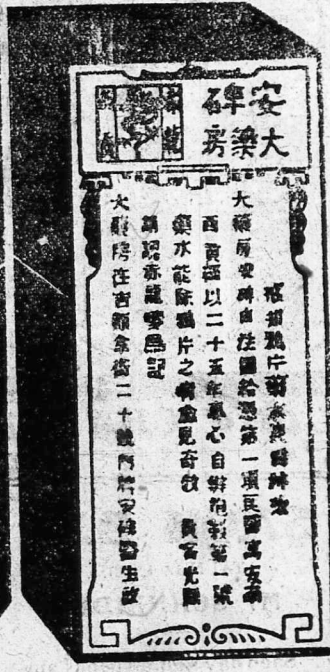 安碑
大藥房
赤龍
戒烟鴉片藥水
大藥房安碑由法國給憑第一項良醫寓安南
西貢經以二十五年專心自辦泡製第一號
藥水能除鴉片之癮愈見奇效 貴客光顧
請認赤龍嘜爲記
大藥房在吉顛拿街二十號門牌安碑醫生啟